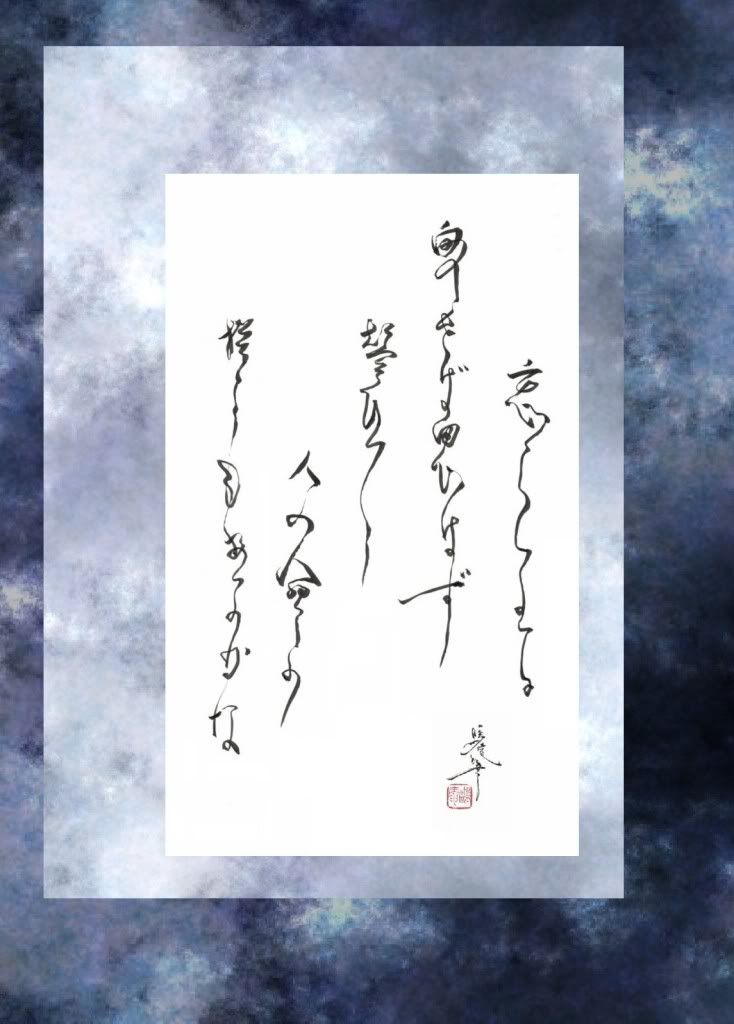 忘らるる
身をば思はず
誓ひてし
人の命の
惜しくもあるかな